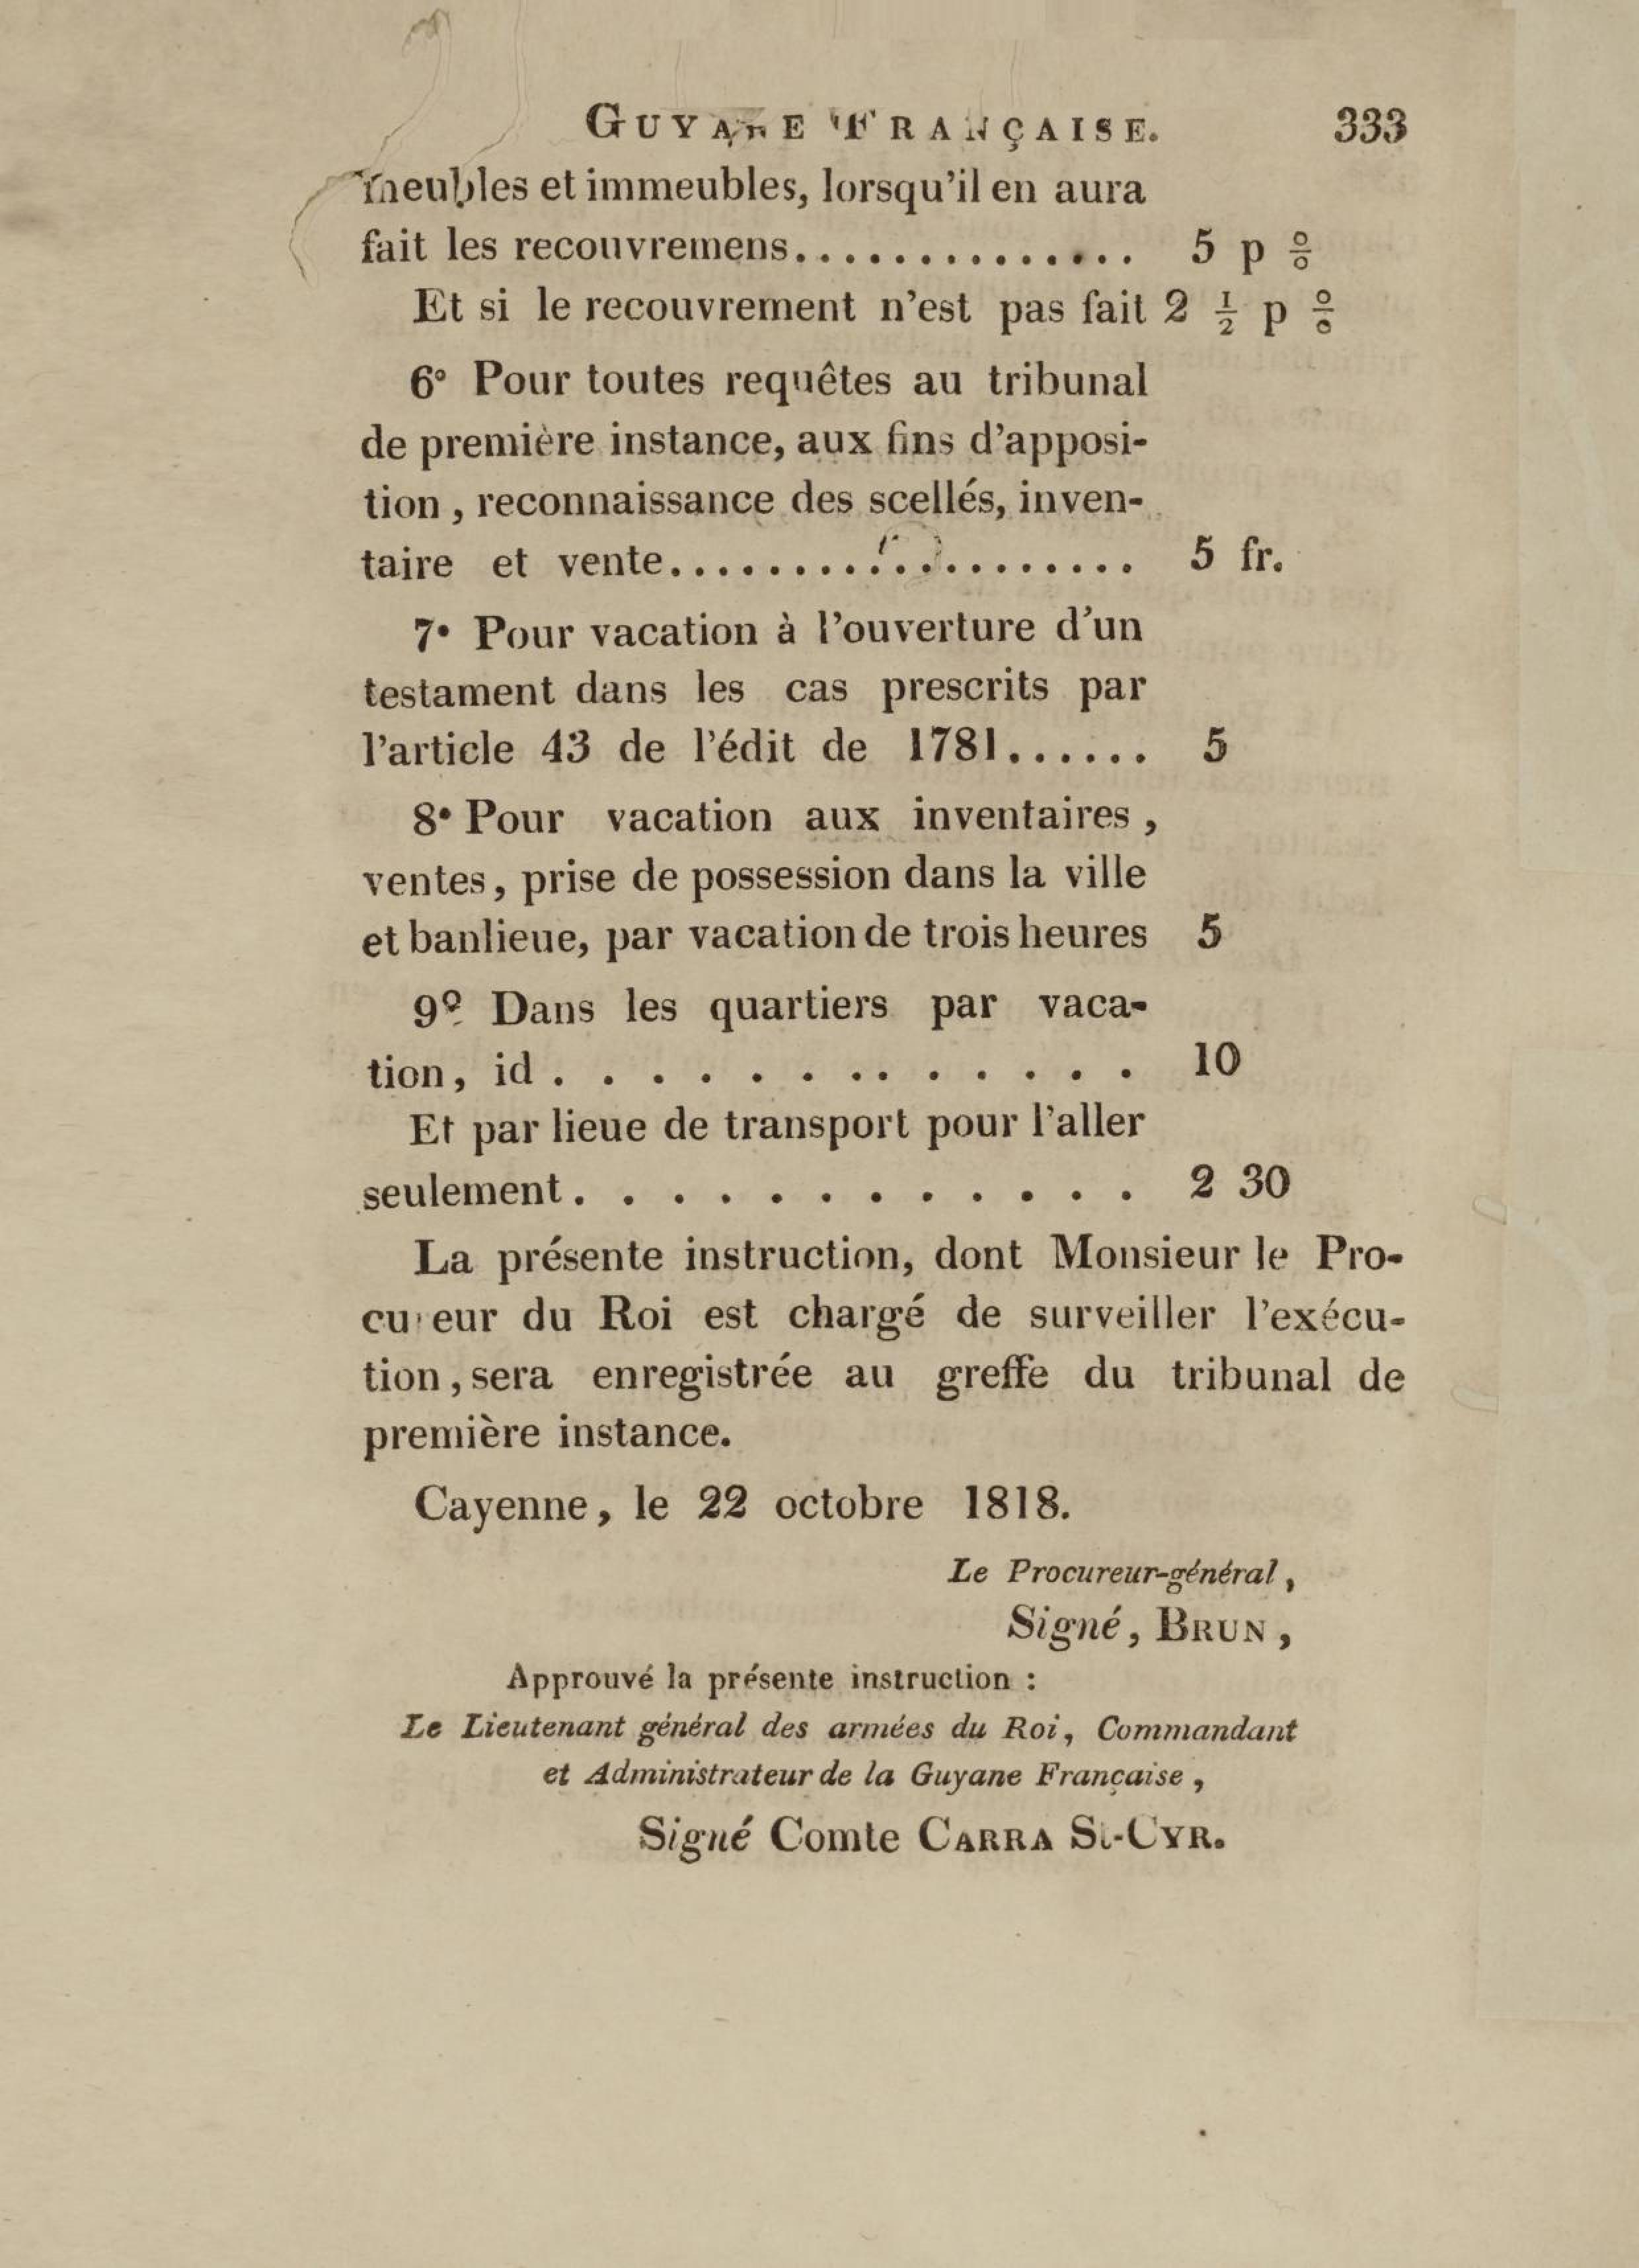 GUYANE FRANÇAISE. 333
meubles et immeubles, lorsqu'il en aura
fait les recouvremens.............. 5 p %
Et si le recouvrement n'est pas fait 2 ½ p %
6° Pour toutes requêtes au tribunal
de première instance, aux fins d'apposi-
tion, reconnaissance des scellés, inven-
taire et vente................... 5 fr.
7° Pour vacation à l'ouverture d'un
testament dans les cas prescrits par
l'article 43 de l'édit de 1781...... 5
8° Pour vacation aux inventaires,
ventes, prise de possession dans la ville
et banlieue, par vacation de trois heures 5
9° Dans les quartiers par vaca-
tion, id. . . . . . . . . . . . . . 10
Et par lieue de transport pour l'aller
seulement. . . . . . . . . . . . 2 30
La présente instruction, dont Monsieur le Pro-
cureur du Roi est chargé de surveiller l'exécu-
tion, sera enregistrée au greffe du tribunal de
première instance.
Cayenne, le 22 octobre 1818.
Le Procureur-général,
Signé, BRUN,
Approuvé la présente instruction :
Le Lieutenant général des armées du Roi, Commandant
et Administrateur de la Guyane Française,
Signé Comte CARRA St-CYR.